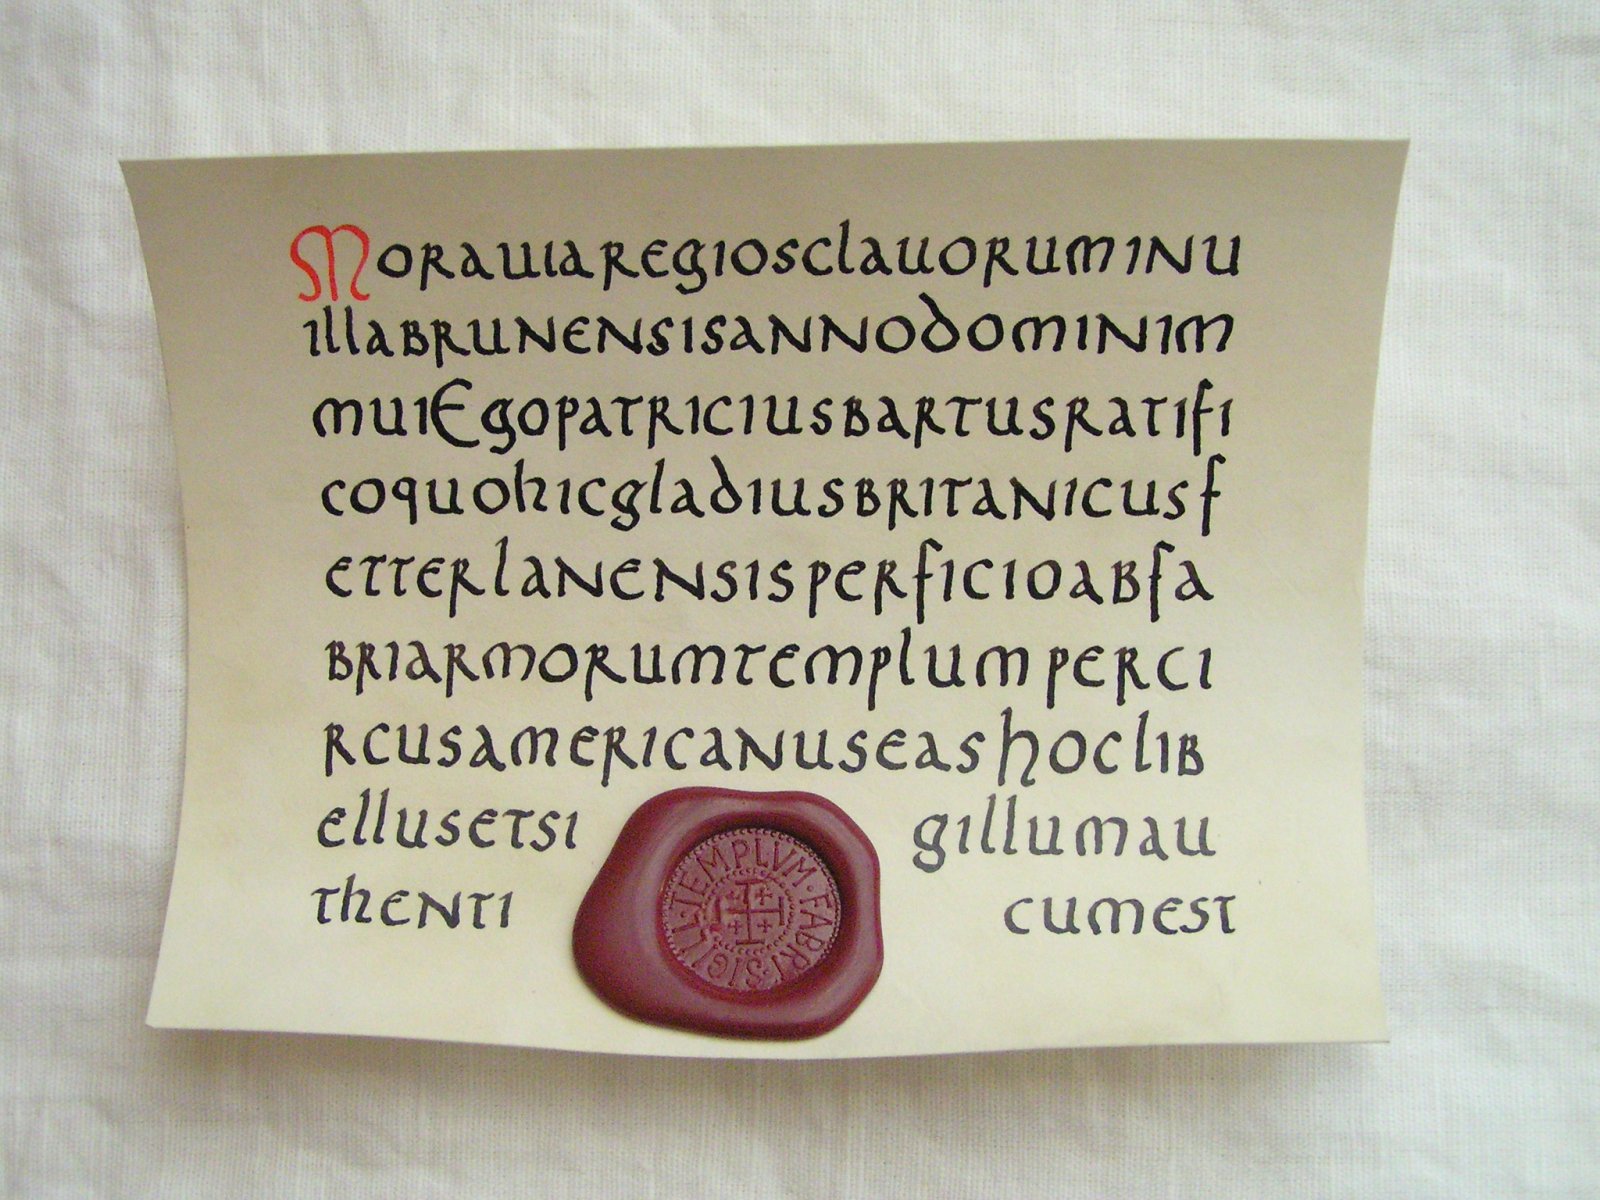 Morauiaregiosclauoruminu
illabrunensisannodominim
muiEgopatriciusbartusratifi
coquohicgladiusbritanicusf
etterlanensisperficioabfa
briarmorumtemplum perci
rcusamericanuseashoclib
ellusetsi gillumau
thenti cumest
TEMPLVM·FABRI·SIGILL·